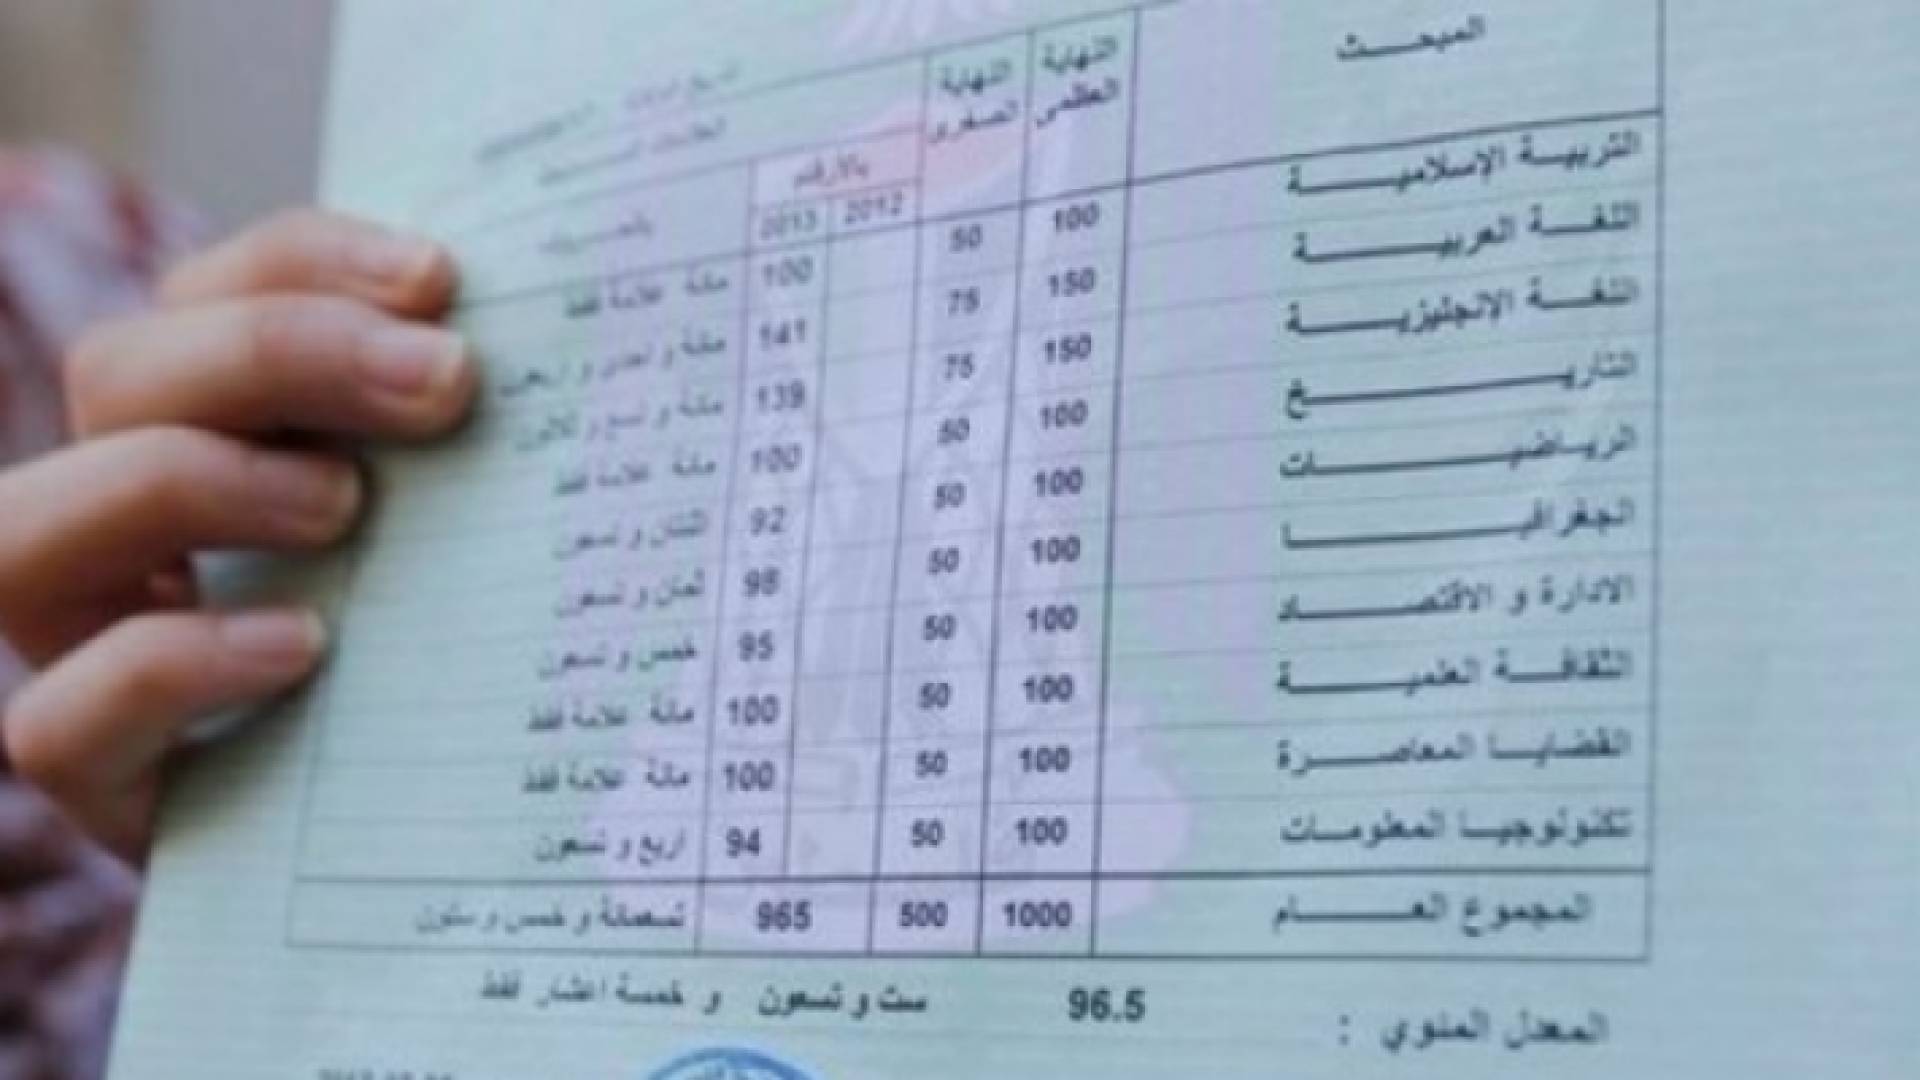 المبحث النهاية العظمى النهاية الصغرى بالأرقام 2012 2013
التربية الإسلامية 100 50 100 مائة علامة فقط
اللغة العربية 150 75 141 مائة و احدى و اربعون
اللغة الإنجليزية 150 75 139 مائة و تسع و ثلاثون
التاريخ 100 50 100 مائة علامة فقط
الرياضيات 100 50 92 اثنتان و تسعون
الجغرافيا 100 50 98 ثمان و تسعون
الادارة و الاقتصاد 100 50 95 خمس و تسعون
الثقافة العلمية 100 50 100 مائة علامة فقط
القضايا المعاصرة 100 50 100 مائة علامة فقط
تكنولوجيا المعلومات 100 50 94 اربع و تسعون
المجموع العام 1000 500 965 تسعمائة و خمس و ستون
المعدل المئوي : 96.5 ست و تسعون و خمسة اعشار فقط